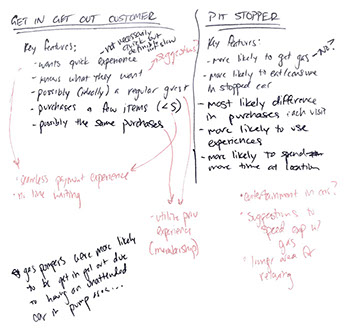 GET IN GET OUT CUSTOMER
Key features:
- wants quick experience
- not necessarily
quick but
definitely slow
- knows what they want
suggestions?
- possibly (ideally) a regular guest
- purchases a few items (<5)
- possibly the same purchases
- seamless payment experience
- no line waiting
- utilize prev
experience
(membership)
* gas pumpers were more likely
to be get in get out due
to having an unattended
car in pump
PIT STOPPER
Key features:
- more likely to get gas - no?
- more likely to eat/consume
in stopped car
- most likely difference
in purchases each visit
- more likely to use
experiences
- more likely to spend
more time at location
- entertainment in
- suggestions to
speed exp w/
gas
- longer area for
relaxing